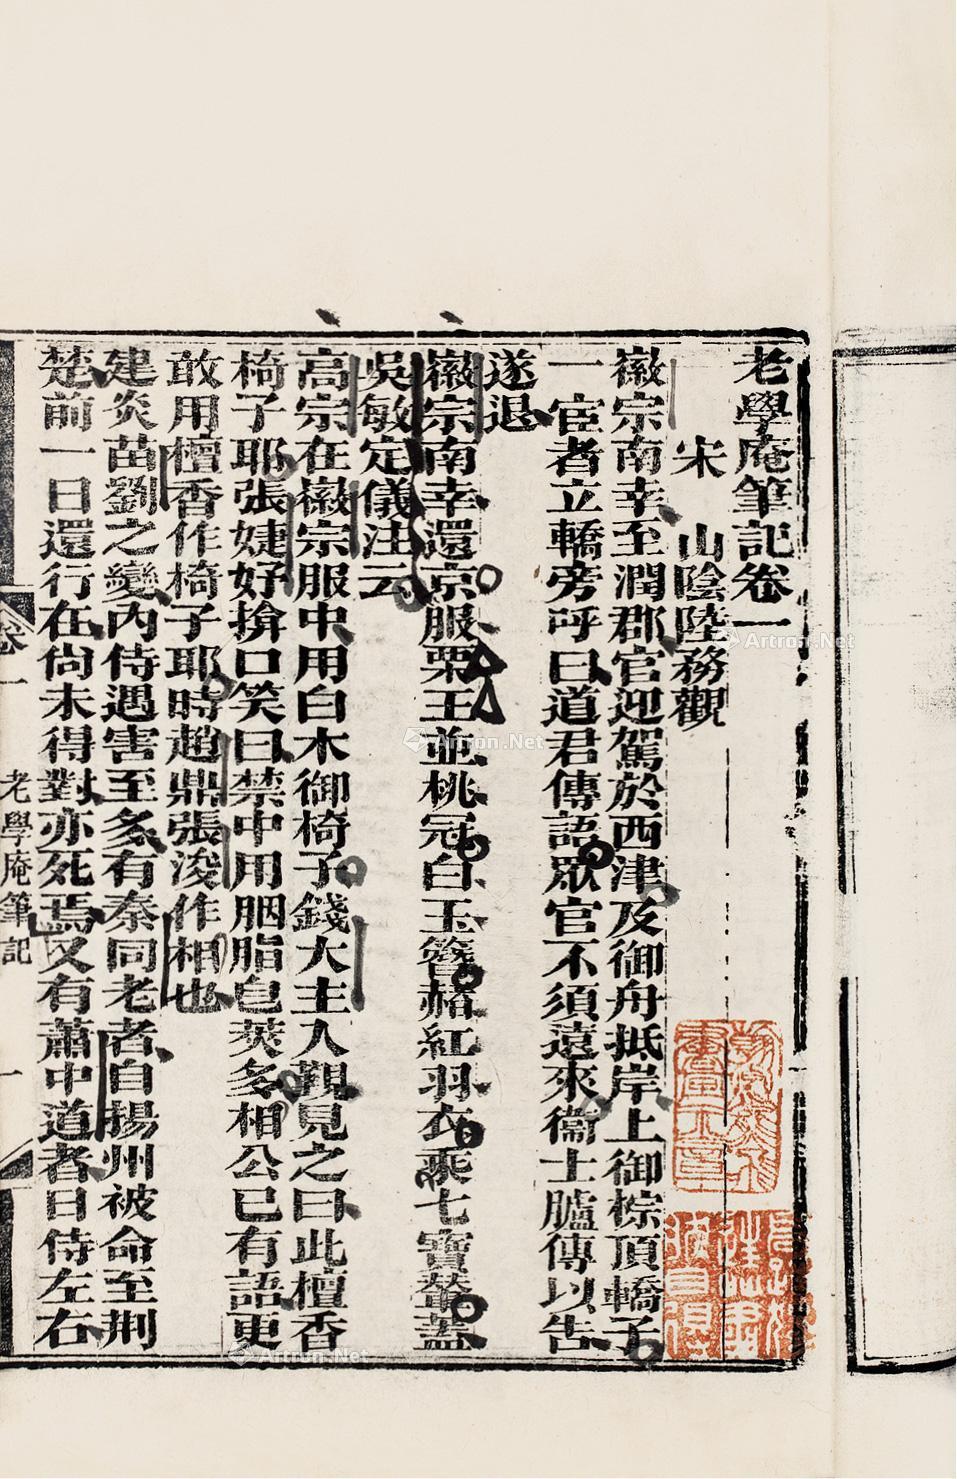 老學庵筆記卷一
宋 山陰陸務觀
徽宗南幸至潤郡官迎駕於西津及御舟抵岸上御棕頂轎子
一宦者立轎旁呼曰道君傳語眾官不須遠來衞士臚傳以告
遂退
徽宗南幸還京服栗玉並桃冠白玉簪赭紅羽衣乘七寶輦蓋
吳敏定儀注云
高宗在徽宗服中用白木御椅子錢大主入覲見之曰此檀香
椅子耶張婕妤掩口笑曰禁中用胭脂皂莢多相公已有語更
敢用檀香作椅子耶時趙鼎張浚作相也
建炎苗劉之變內侍遇害至多有秦同老者自揚州被命至荆
楚前一日還行在尚未得對亦死焉又有蕭中道者日侍左右
卷一
老學庵筆記
一
Artron.Net
Artron.Net
Artron.Net